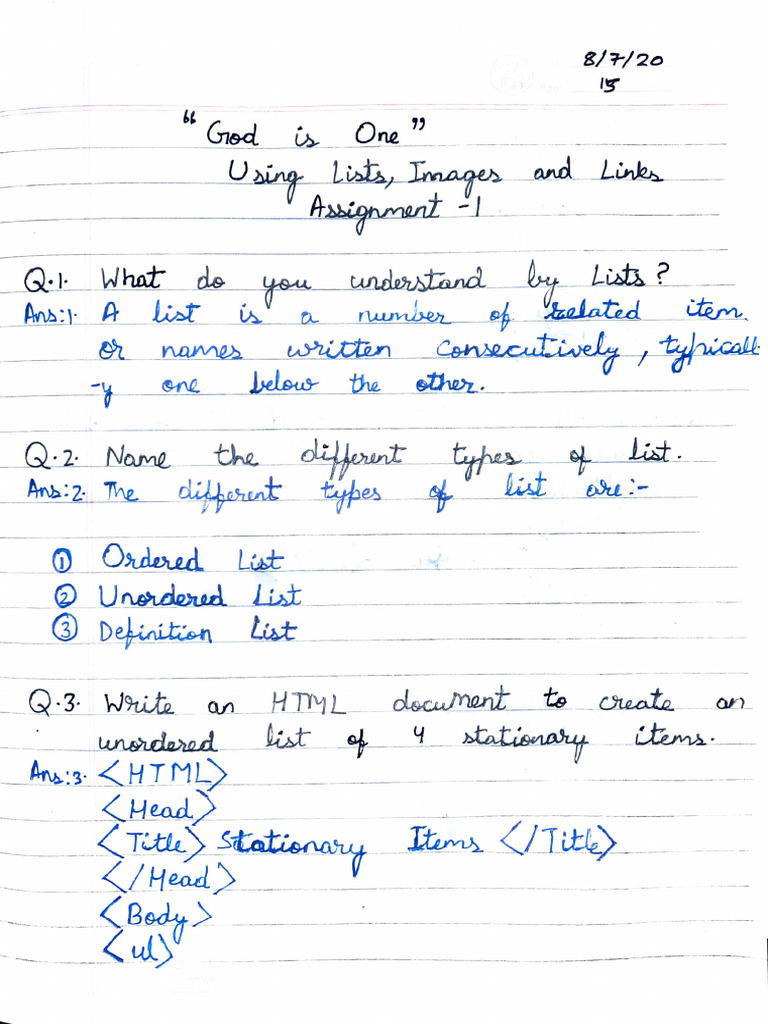 8/7/20
15
"God is One"
Using Lists, Images and Links
Assignment -1
Q.1. What do you understand by Lists?
Ans:1. A list is a number of related item
or names written consecutively, typicall
-y one below the other.
Q.2. Name the different types of list.
Ans:2. The different types of list are:-
① Ordered List
② Unordered List
③ Definition List
Q.3. Write an HTML document to create an
unordered list of 4 stationary items.
Ans:3. <HTML>
<Head>
<Title> Stationary Items </Title>
</Head>
<Body>
<ul>